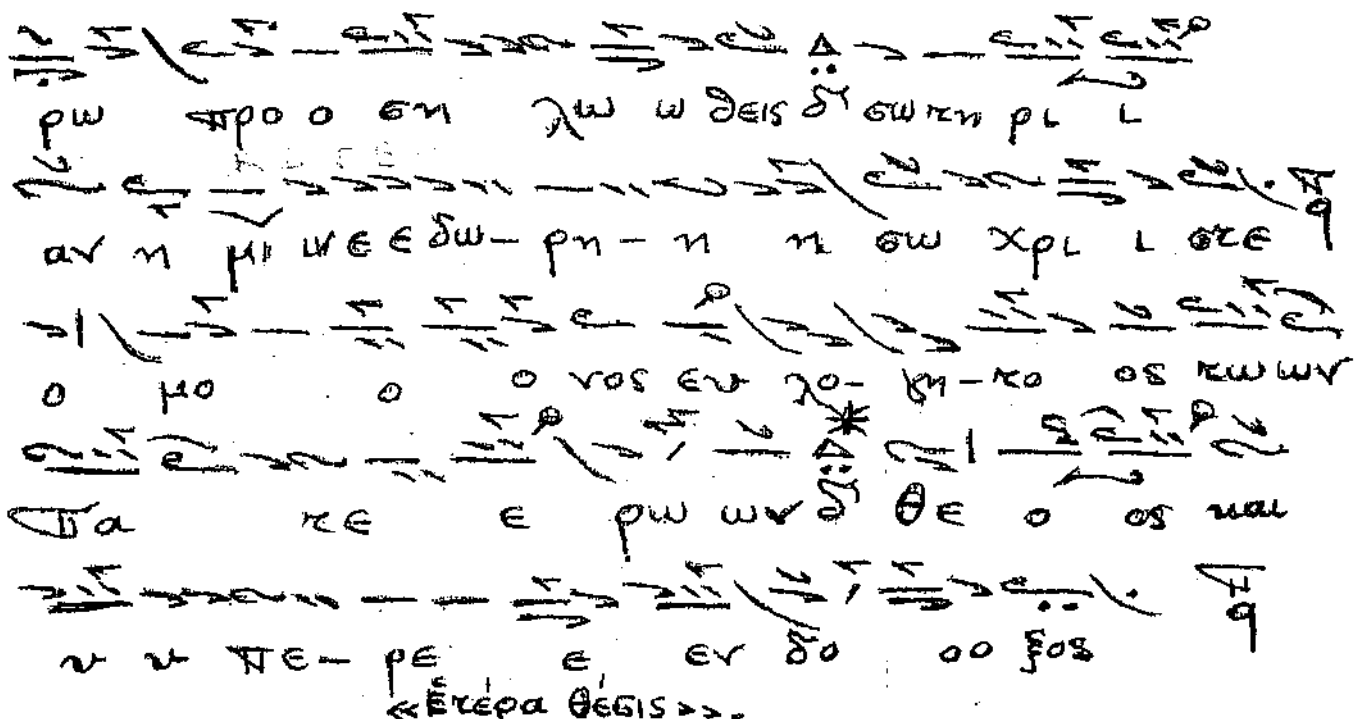 ρω προ ο ση λω ω θεις δ' σω τη ρι ι
αν η μι ν ε ε δω – ρη – η η σω χρι ι στε
ο μο ο ο νος ευ λο – γη – το ος τω ων
Πα τε ε ρω ων δ' θε ο ος και
υ υ πε – ρε ε εν δο οο ξος
«Ετέρα θέσις».